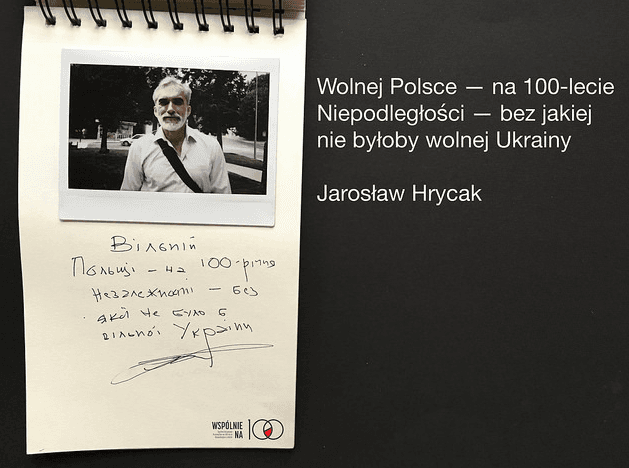 Вільній
Польщі – на 100-річчя
Незалежності – без
якої не було б
вільної України
WSPÓLNIE
NA 100
Wolnej Polsce — na 100-lecie
Niepodległości — bez jakiej
nie byłoby wolnej Ukrainy
Jarosław Hrycak